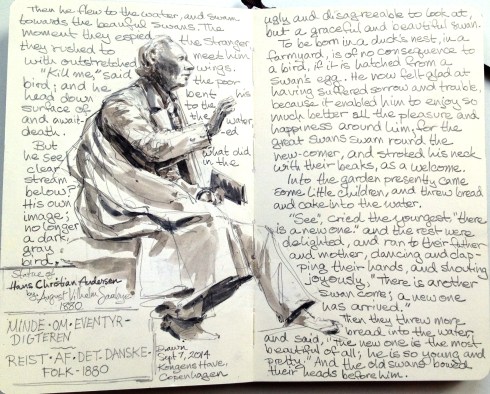 Then he flew to the water, and swam
towards the beautiful swans. The
moment they espied the stranger
they rushed to meet him
with outstretched wings.
"Kill me," said the poor
bird; and he bent his
head down to the
surface of the water
and await-ed
death.
But what did
he see in the
clear
stream
below?
His own
image;
no longer
a dark,
gray
bird,
Statue of
Hans Christian Andersen
by August Vilhelm Saabye
1880
MINDE·OM·EVENTYR-
DIGTEREN
REIST·AF·DET·DANSKE·
FOLK·1880
Drawn
Sept 7, 2014
Kongens Have,
Copenhagen
ugly and disagreeable to look at,
but a graceful and beautiful swan.
To be born in a duck's nest, in a
farmyard, is of no consequence to
a bird, if it is hatched from a
swan's egg. He now felt glad at
having suffered sorrow and trouble,
because it enabled him to enjoy so
much better all the pleasure and
happiness around him; for the
great swans swam round the
new-comer, and stroked his neck
with their beaks, as a welcome.
Into the garden presently came
some little children, and threw bread
and cake into the water.
"See", cried the youngest, "there
is a new one." and the rest were
delighted, and ran to their father
and mother, dancing and clap-
ping their hands, and shouting
joyously, "There is another
swan come; a new one
has arrived."
Then they threw more
bread into the water,
and said, "The new one is the most
beautiful of all; he is so young and
pretty." And the old swans bowed
their heads before him.